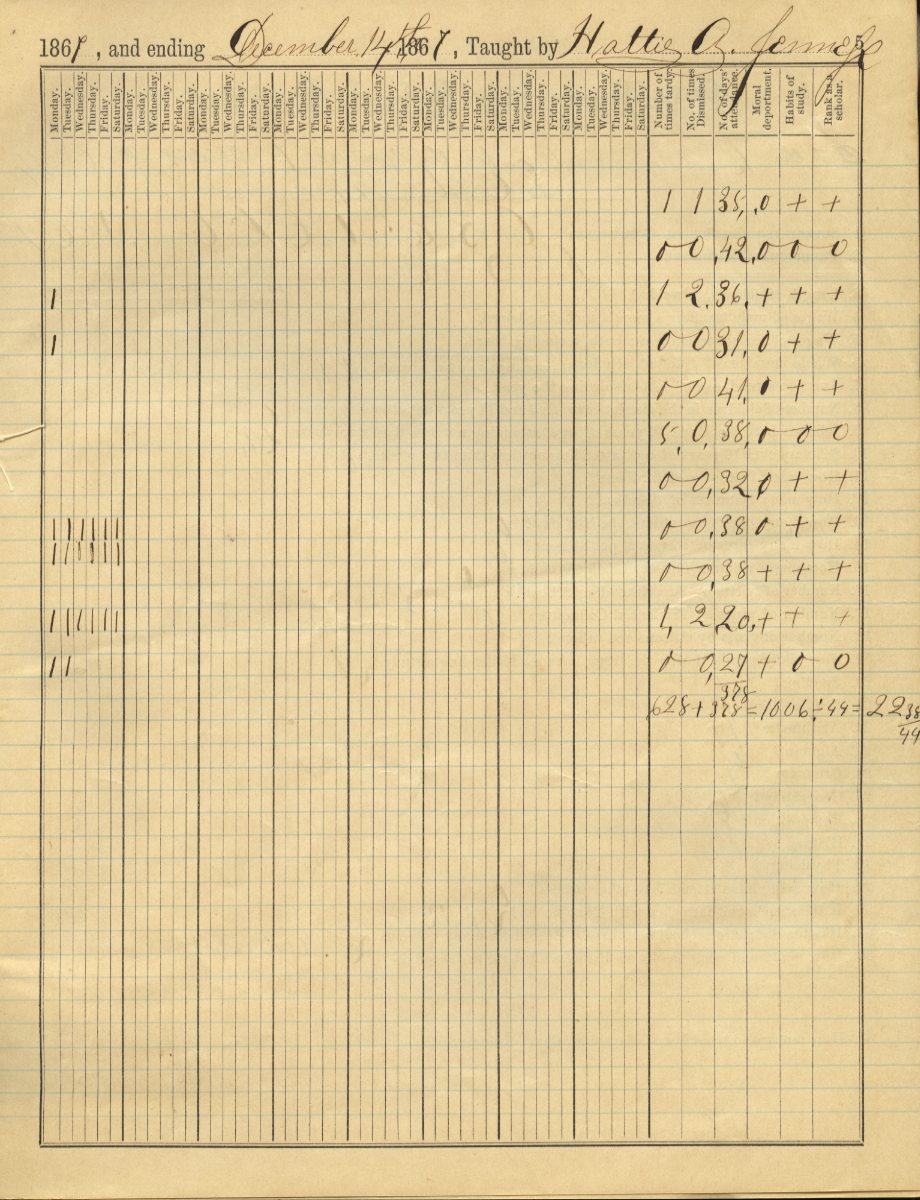 1867, and ending December 14th 1867, Taught by Hattie A. 5
Monday. Tuesday. Wednesday. Thursday. Friday. Saturday. Monday. Tuesday. Wednesday. Thursday. Friday. Saturday. Monday. Tuesday. Wednesday. Thursday. Friday. Saturday. Monday. Tuesday. Wednesday. Thursday. Friday. Saturday. Monday. Tuesday. Wednesday. Thursday. Friday. Saturday. Monday. Tuesday. Wednesday. Thursday. Friday. Saturday. Monday. Tuesday. Wednesday. Thursday. Friday. Saturday. Monday. Tuesday. Wednesday. Thursday. Friday. Saturday. Number of times tardy. No. of times Dismissed. No. of days' attendance. Moral deportment. Habits of study. Rank as a scholar.
1 1 35, 0 + +
0 0, 42, 0 0 0
1 1 2. 36. + + +
1 0 0 31, 0 + +
0 0 41, 0 + +
5, 0, 38, 0 0 0
0 0, 32 0 + +
1 1 1 1 1 1 0 0, 38 0 + +
1 1 0 0 1 1 0 0, 38 + + +
1 1 1 1 1 1 1, 2 20, + + +
1 1 0 0, 27 + 0 0
378
628 + 378 = 1006 ÷ 44 = 22 38/44